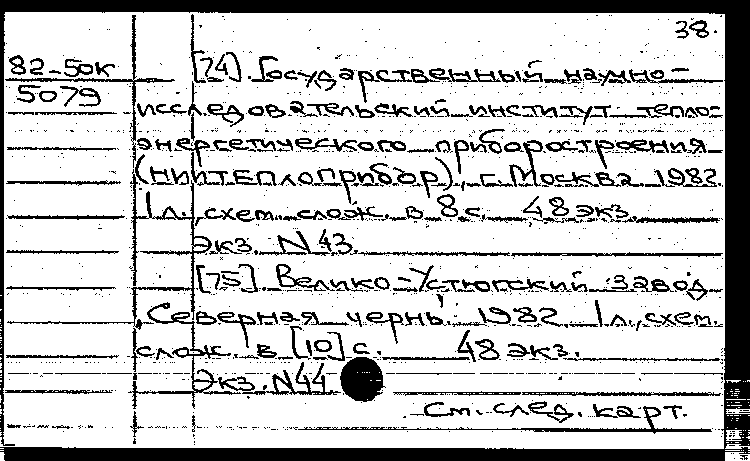 38.
82-50к [74]. Государственный научно-
5079 исследовательский институт тепло-
энергетического приборостроения
(НИИТЕПЛОПРИбор), г. Москва 1982
1 л., схем. слож. в 8 с. 48 экз.
экз. N 43.
[75]. Велико-Устюгский завод
"Северная чернь". 1982 1 л., схем.
слож. в [10] с. 48 экз.
Экз. N44
См. след. карт.